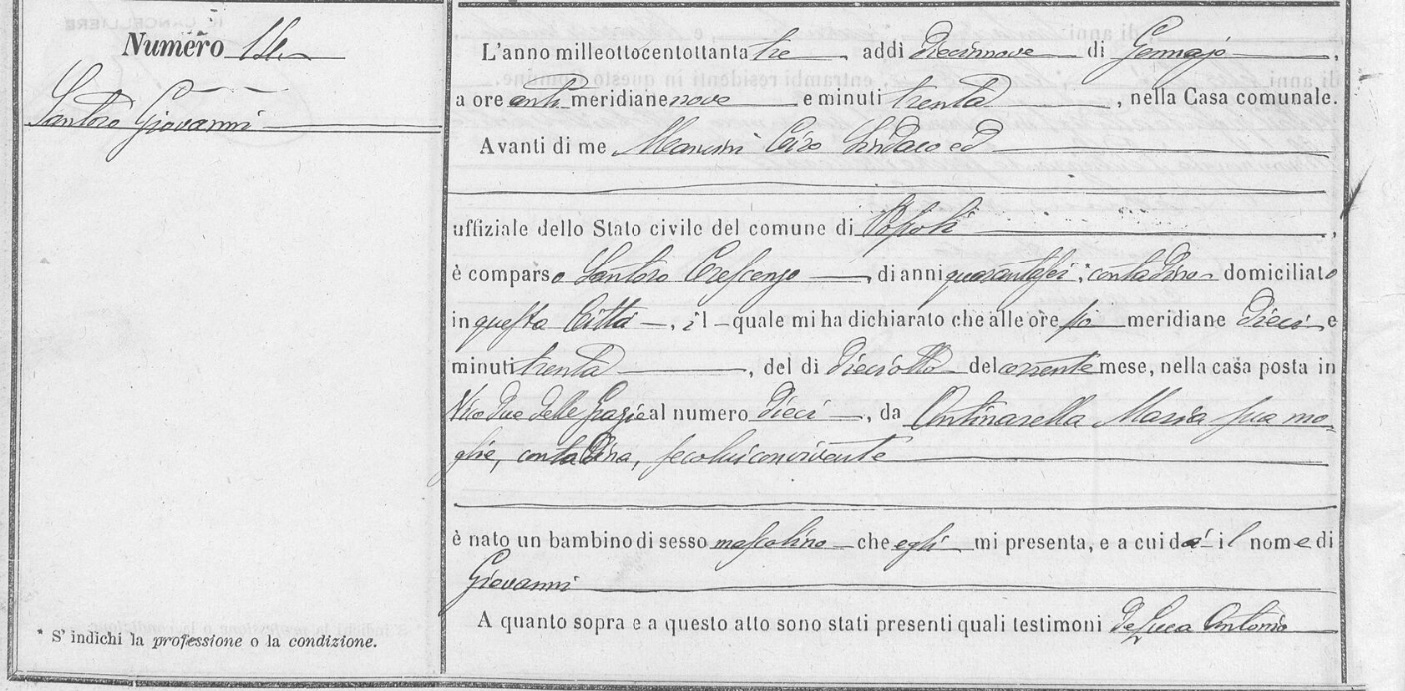 Numero 14
Santoro Giovanni
* S' indichi la professione o la condizione.
L'anno milleottocentottanta tre, addì diecinove di Gennajo,
a ore anti meridiane nove e minuti trenta, nella Casa comunale.
Avanti di me Mancini Ciro Sindaco ed
uffiziale dello Stato civile del comune di Popoli,
è comparso Santoro Crescenzo, di anni quarantasei, contadino domiciliato
in questa Città, il quale mi ha dichiarato che alle ore po meridiane dieci e
minuti trenta, del dì dieciotto del corrente mese, nella casa posta in
Vico due delle Grazie al numero dieci, da Antinarella Maria sua mo-
glie, contadina, seco lui convivente
è nato un bambino di sesso mascolino che egli mi presenta, e a cui dà il nome di
Giovanni
A quanto sopra e a questo atto sono stati presenti quali testimoni de Luca Antonio